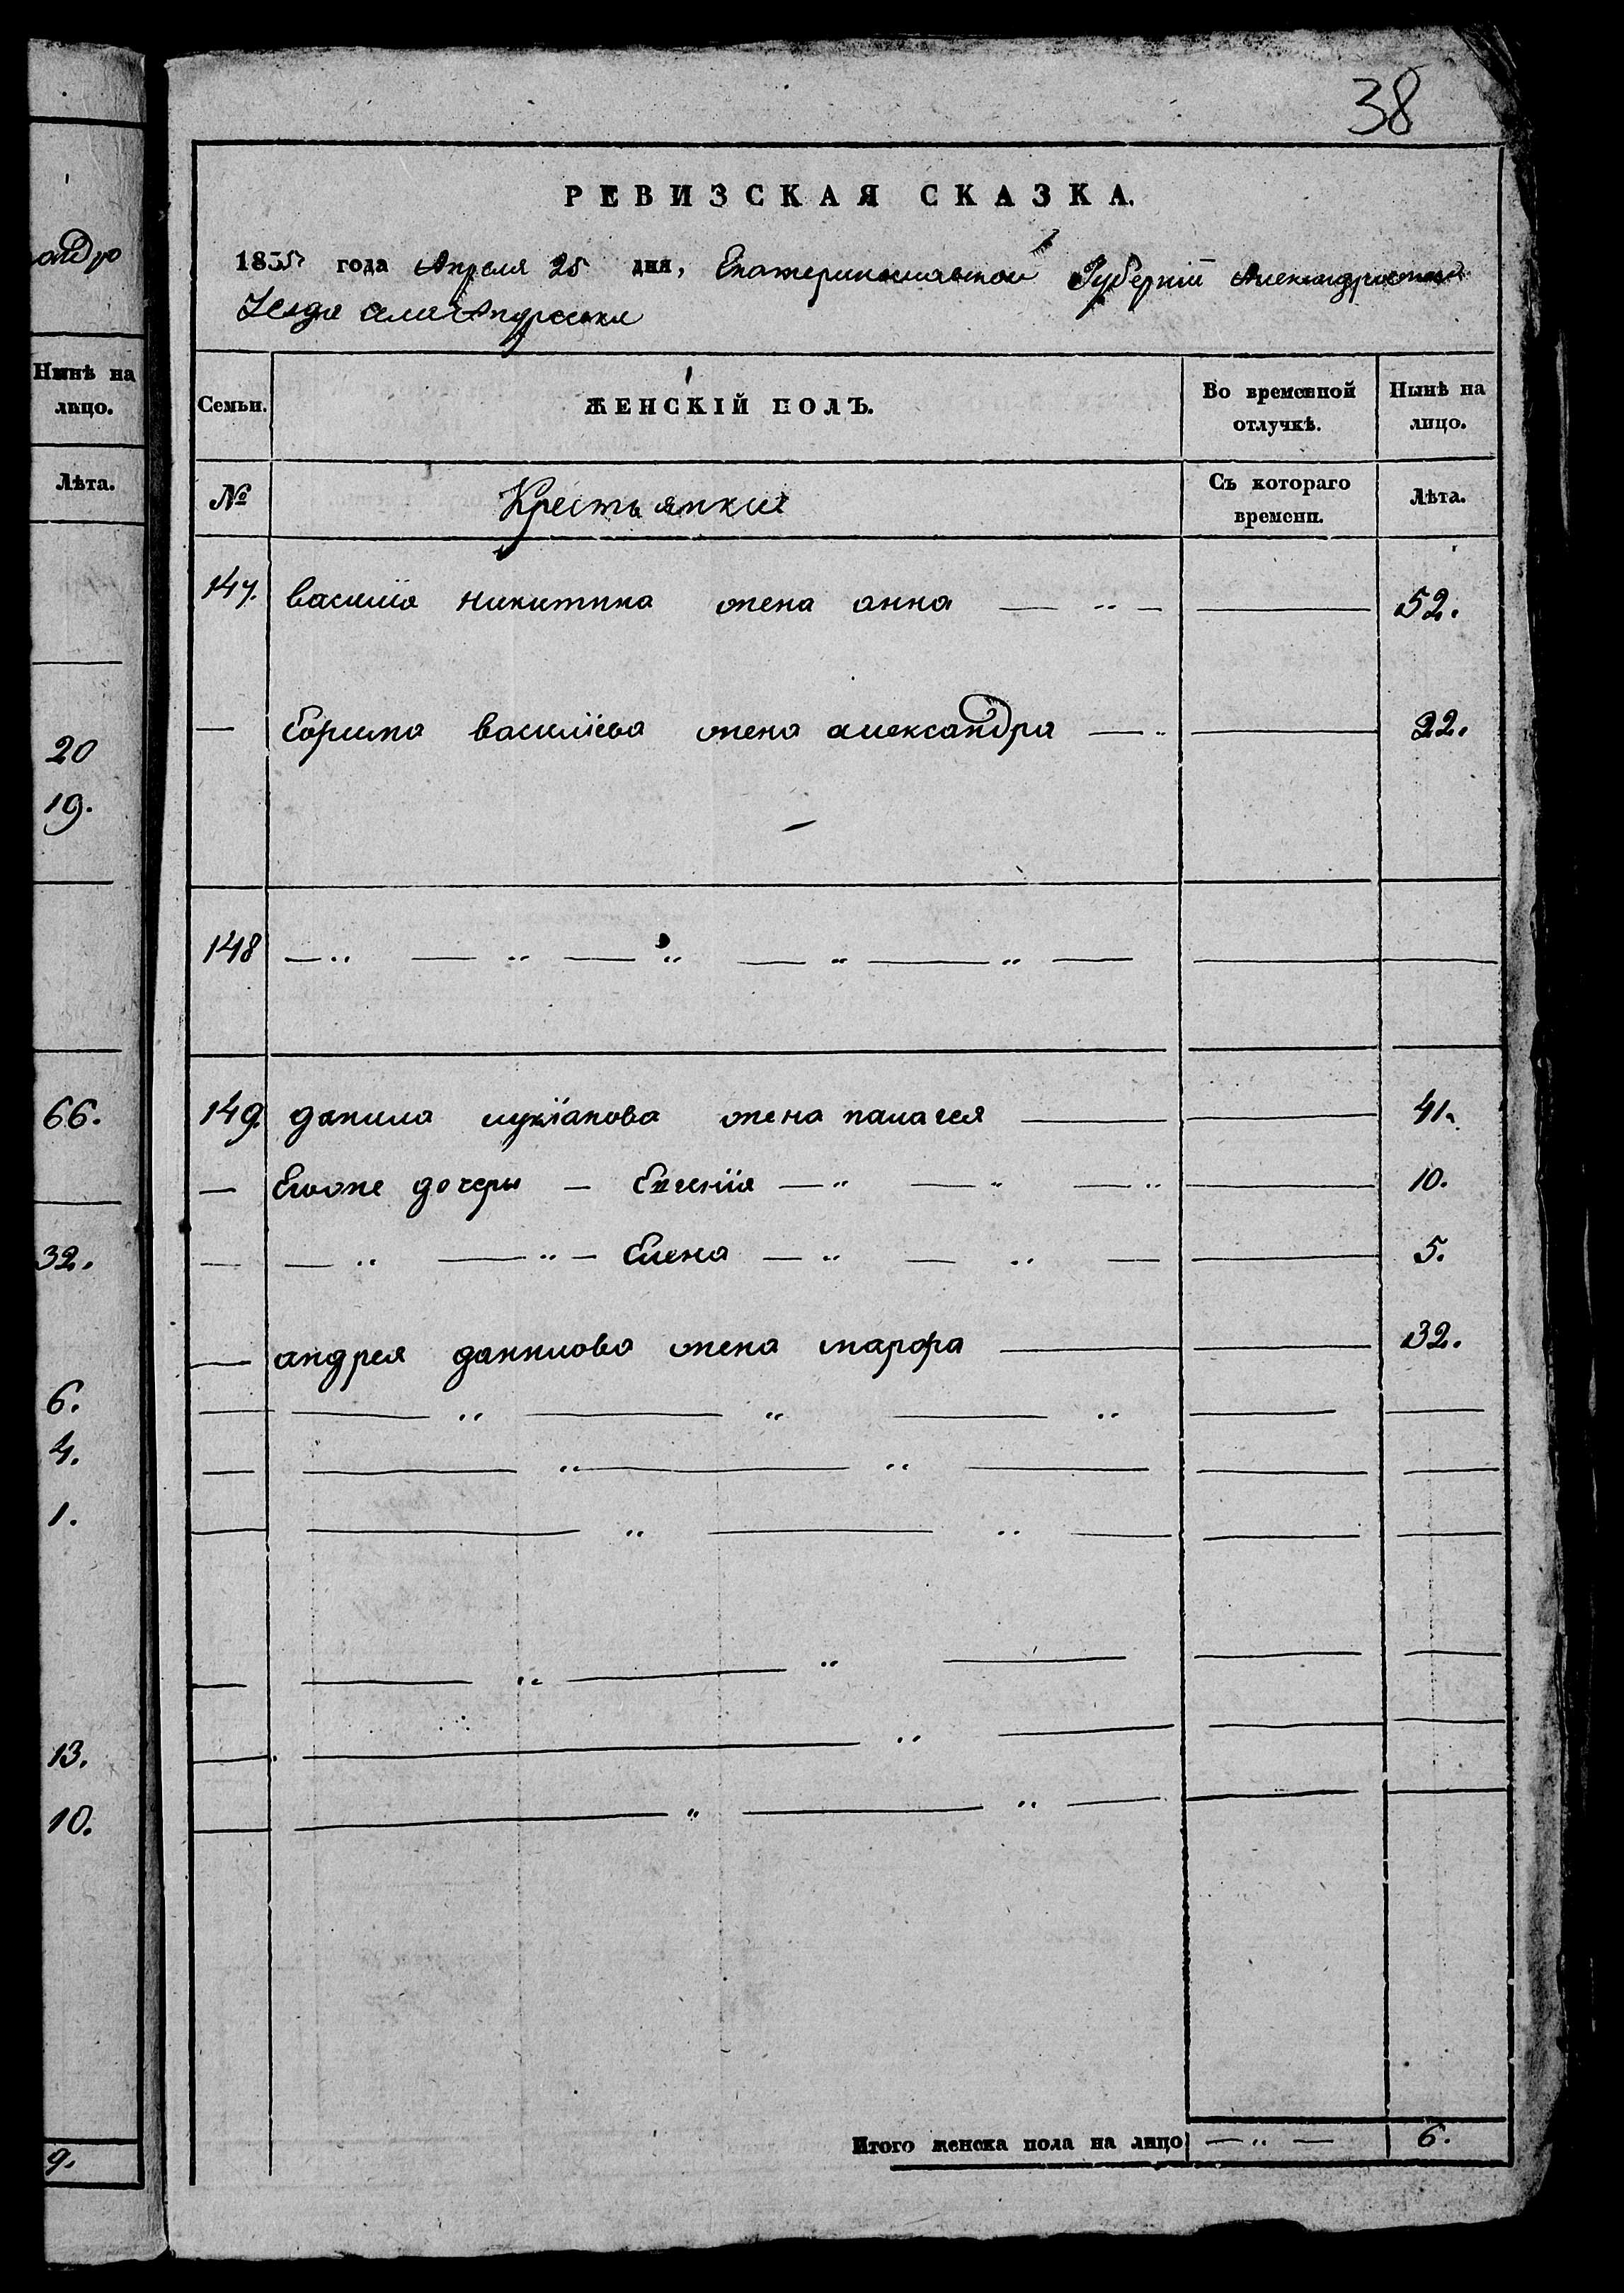 андро
Нынѣ на
лицо.
Лѣта.
20
19.
66.
32.
6.
4.
1.
13.
10.
9.
38
РЕВИЗСКАЯ СКАЗКА.
1835 года Апреля 25 дня, Екатеринославской Губерніи Александровского
Уезда села
Семьи. ЖЕНСКІЙ ПОЛЪ. Во временной отлучкѣ. Нынѣ на лицо.
№ Крестьянки Съ котораго времени. Лѣта.
147. василія никитина жена анна — „ — — 52.
— василіева жена александра — „ — 22.
148 — „ — „ — „ — „ — „ — — —
149. данила лукіанова жена палагея — — 41.
— Еговже дочеры — Евгенія — „ — „ — „ — 10.
— — „ — „ — Елена — „ — „ — — 5.
— андрея данилова жена марфа — — 32.
— — „ — „ — „ — —
— — „ — „ — — —
— — „ — „ — — —
— — „ — „ — — —
— — „ — — —
— — „ — „ — — —
Итого женска пола на лицо — „ — 6.